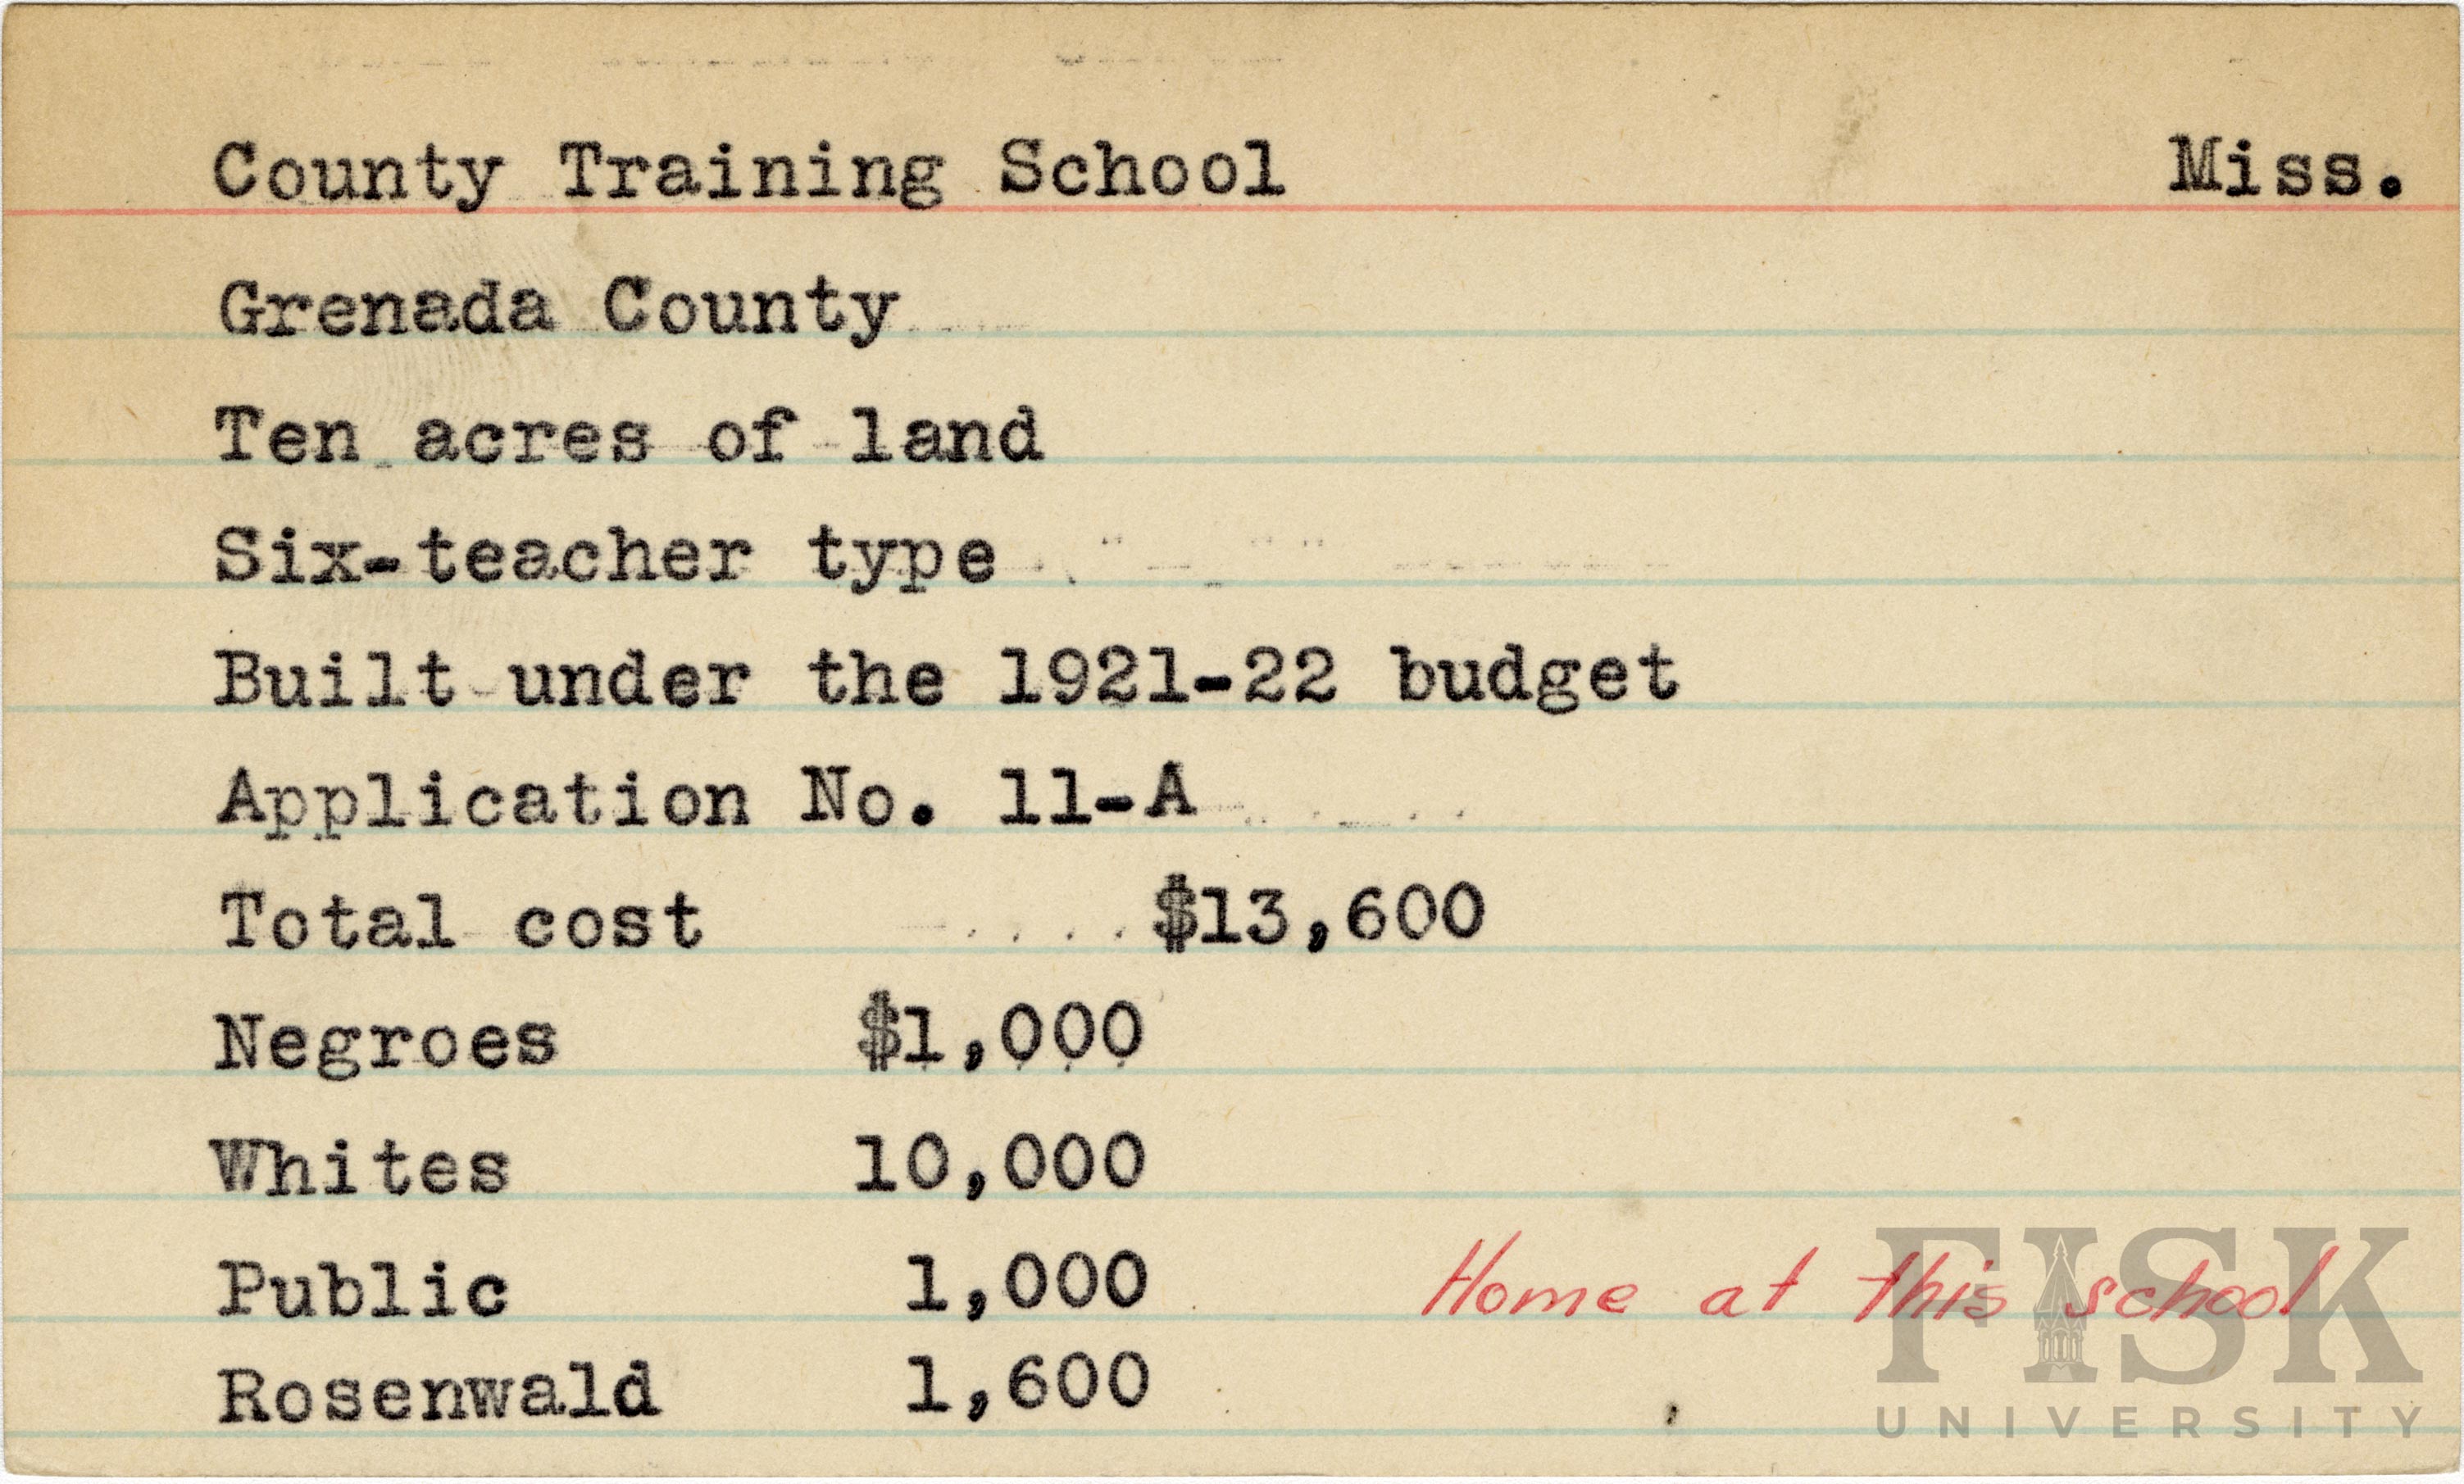 County Training School Miss.
Grenada County
Ten acres of land
Six-teacher type
Built under the 1921-22 budget
Application No. 11-A
Total cost $13,600
Negroes $1,000
Whites 10,000
Public 1,000 Home at this school
Rosenwald 1,600
FISK
UNIVERSITY